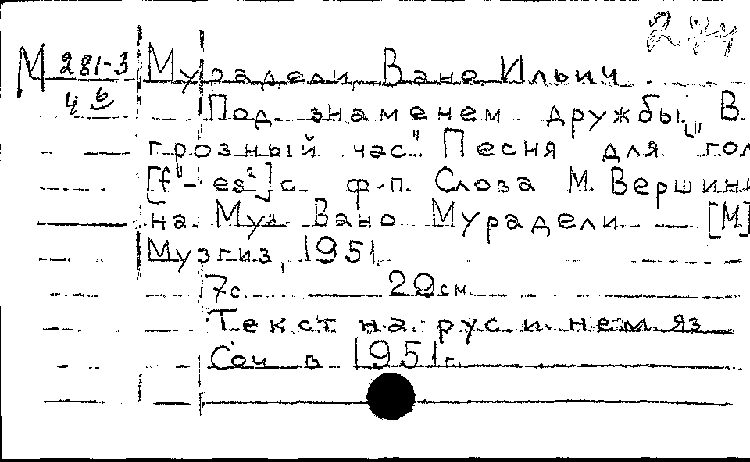 274
М 281-3
46
Мурадели, Вано Ильич.
Под знаменем дружбы. „В
грозный час". Песня для гол
[f¹ - es²] с ф-п. Слова М. Верши
на. Муз. Вано Мурадели — [М]
Музгиз, 1951.
7с. 29см.
Текст на рус. и нем. яз
Соч. в 1951 г.